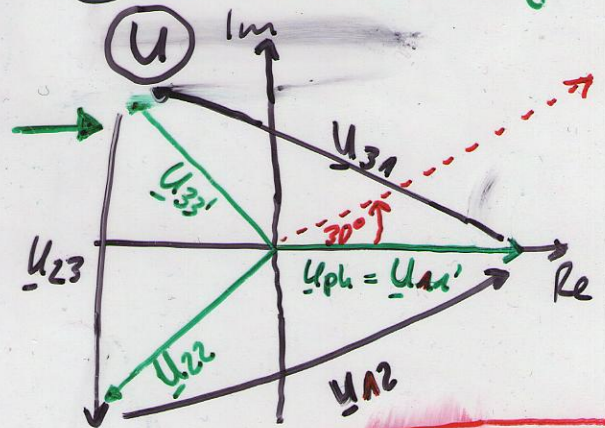 U
Im
U31
U33'
30°
U23
Uph = U11'
Re
U22
U12